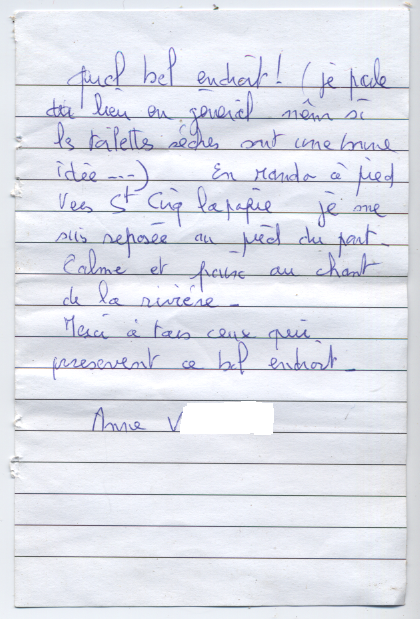 Quel bel endroit ! (je parle
du lieu en général même si
les toilettes sèches sont une bonne
idée ---) En rando à pied
vers St Cirq lapopie je me
suis reposée au pied du pont.
Calme et pause au chant
de la rivière -
Merci à tous ceux qui
preservent ce bel endroit -
Anne V